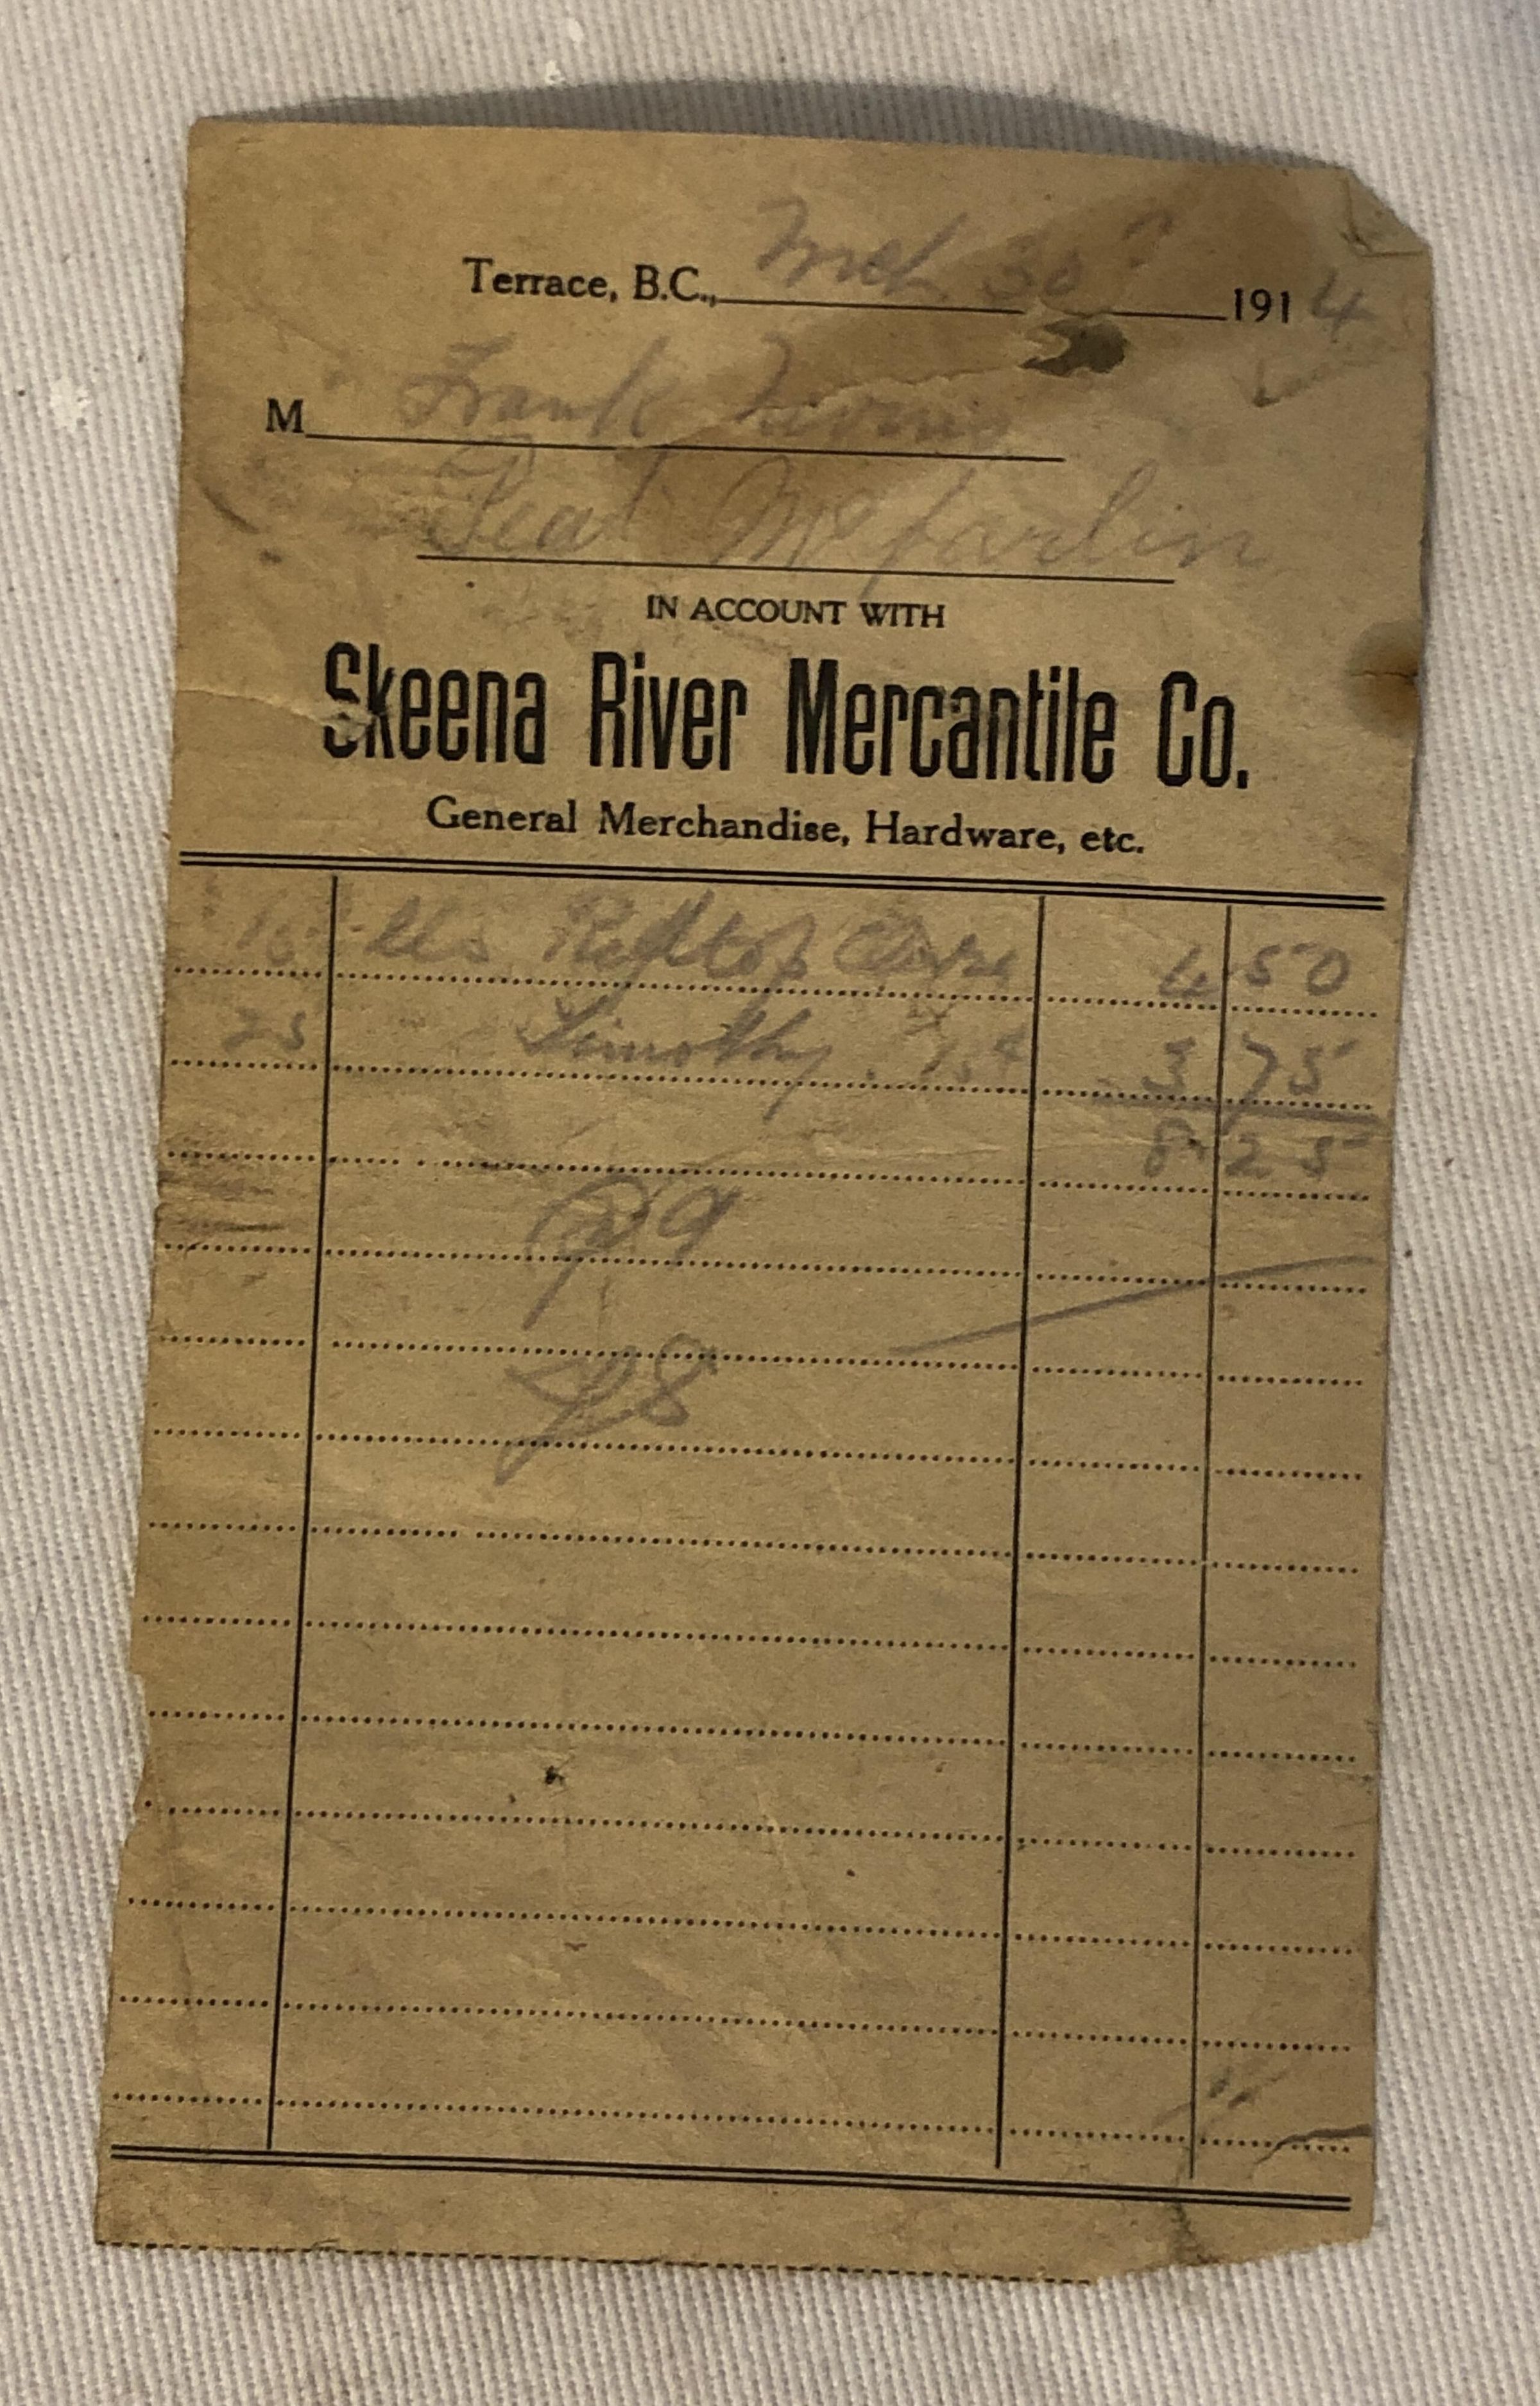 Terrace, B.C., Mch 30 1914
M Frank
McFarlin
IN ACCOUNT WITH
Skeena River Mercantile Co.
General Merchandise, Hardware, etc.
lbs Redtop 4 50
25 Timothy 15¢ 3 75
8 25